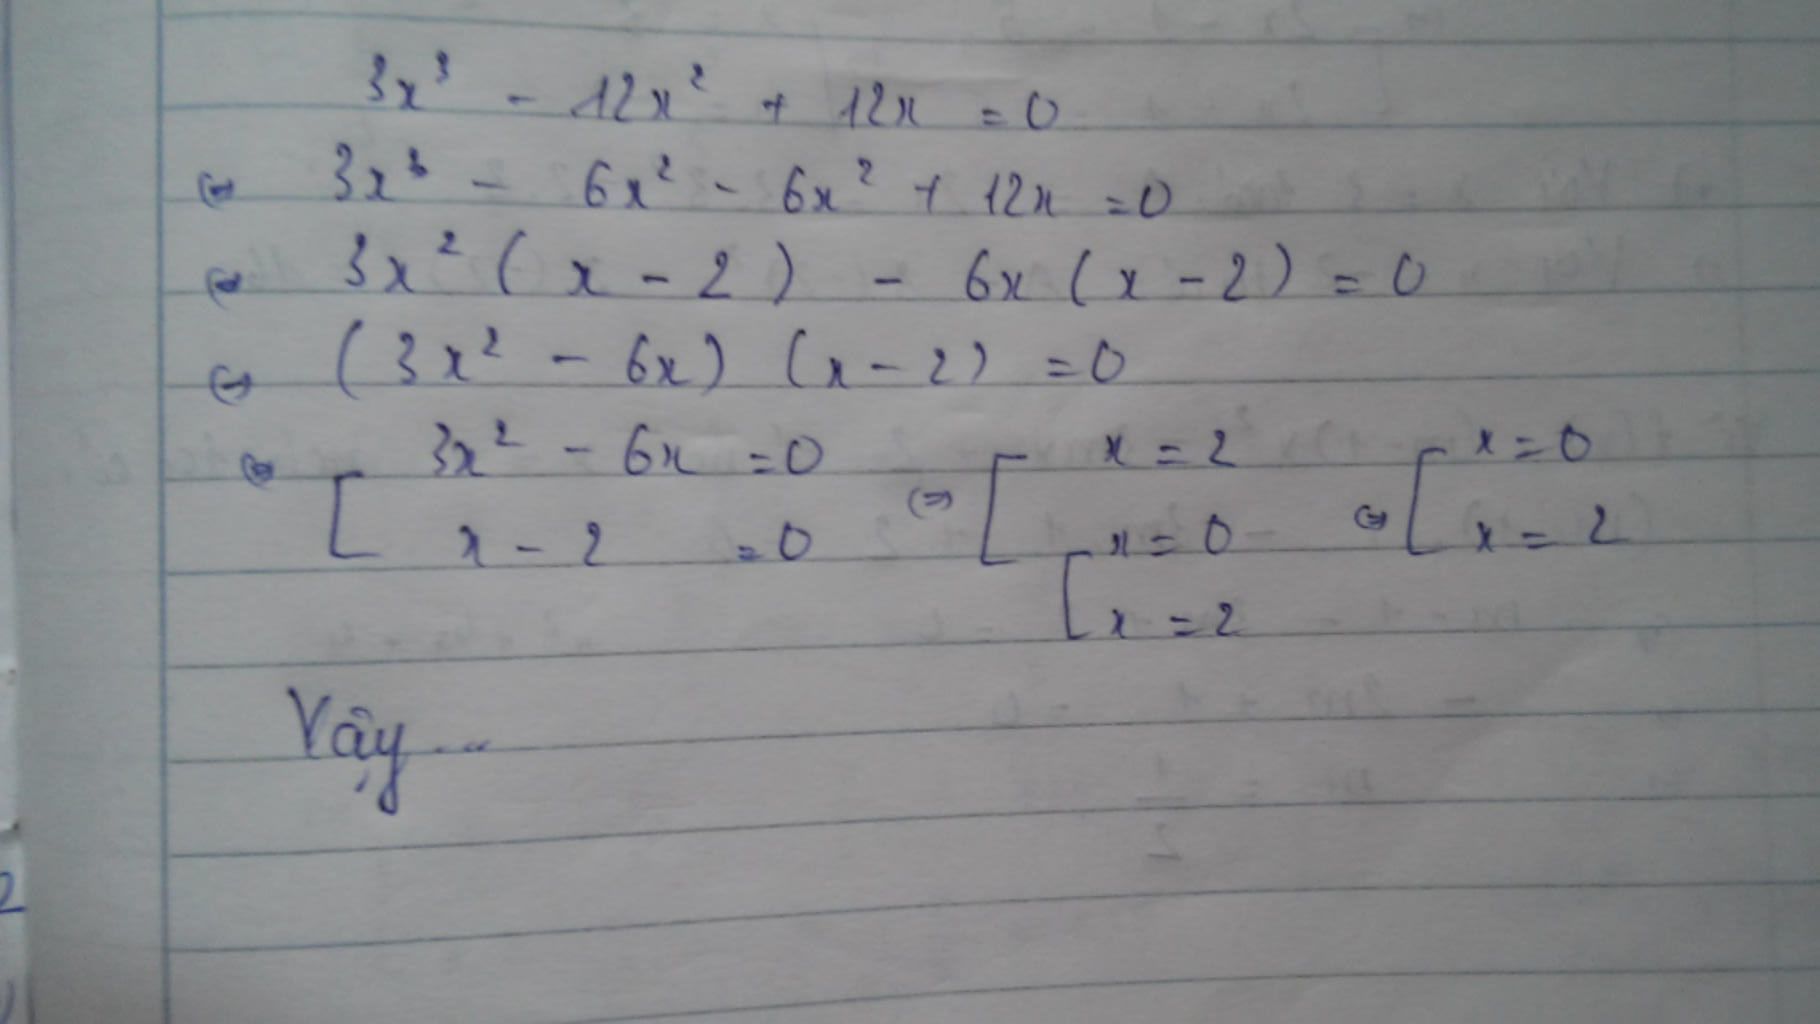 3x³ - 12x² + 12x = 0
⇔ 3x³ - 6x² - 6x² + 12x = 0
⇔ 3x² ( x - 2 ) - 6x ( x - 2 ) = 0
⇔ ( 3x² - 6x ) ( x - 2 ) = 0
⇔ [ 3x² - 6x = 0 ⇔ [ x = 2 ⇔ [ x = 0
x - 2 = 0 [ x = 0 x = 2
x = 2
Vậy ...
2